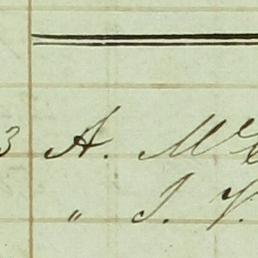 3 A. Mc
" J. V.